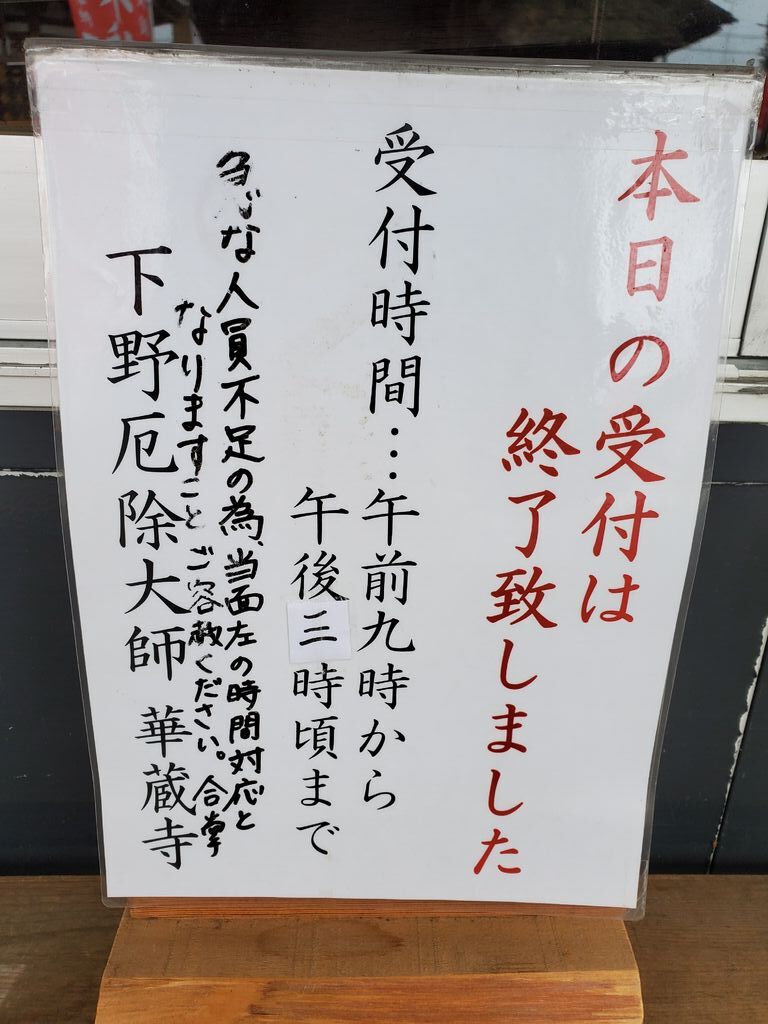 本日の受付は
終了致しました
受付時間…午前九時から
午後三時頃まで
な人員不足の為、当面左の時間対応と
なりますことご容赦ください。合掌
下野厄除大師 華蔵寺